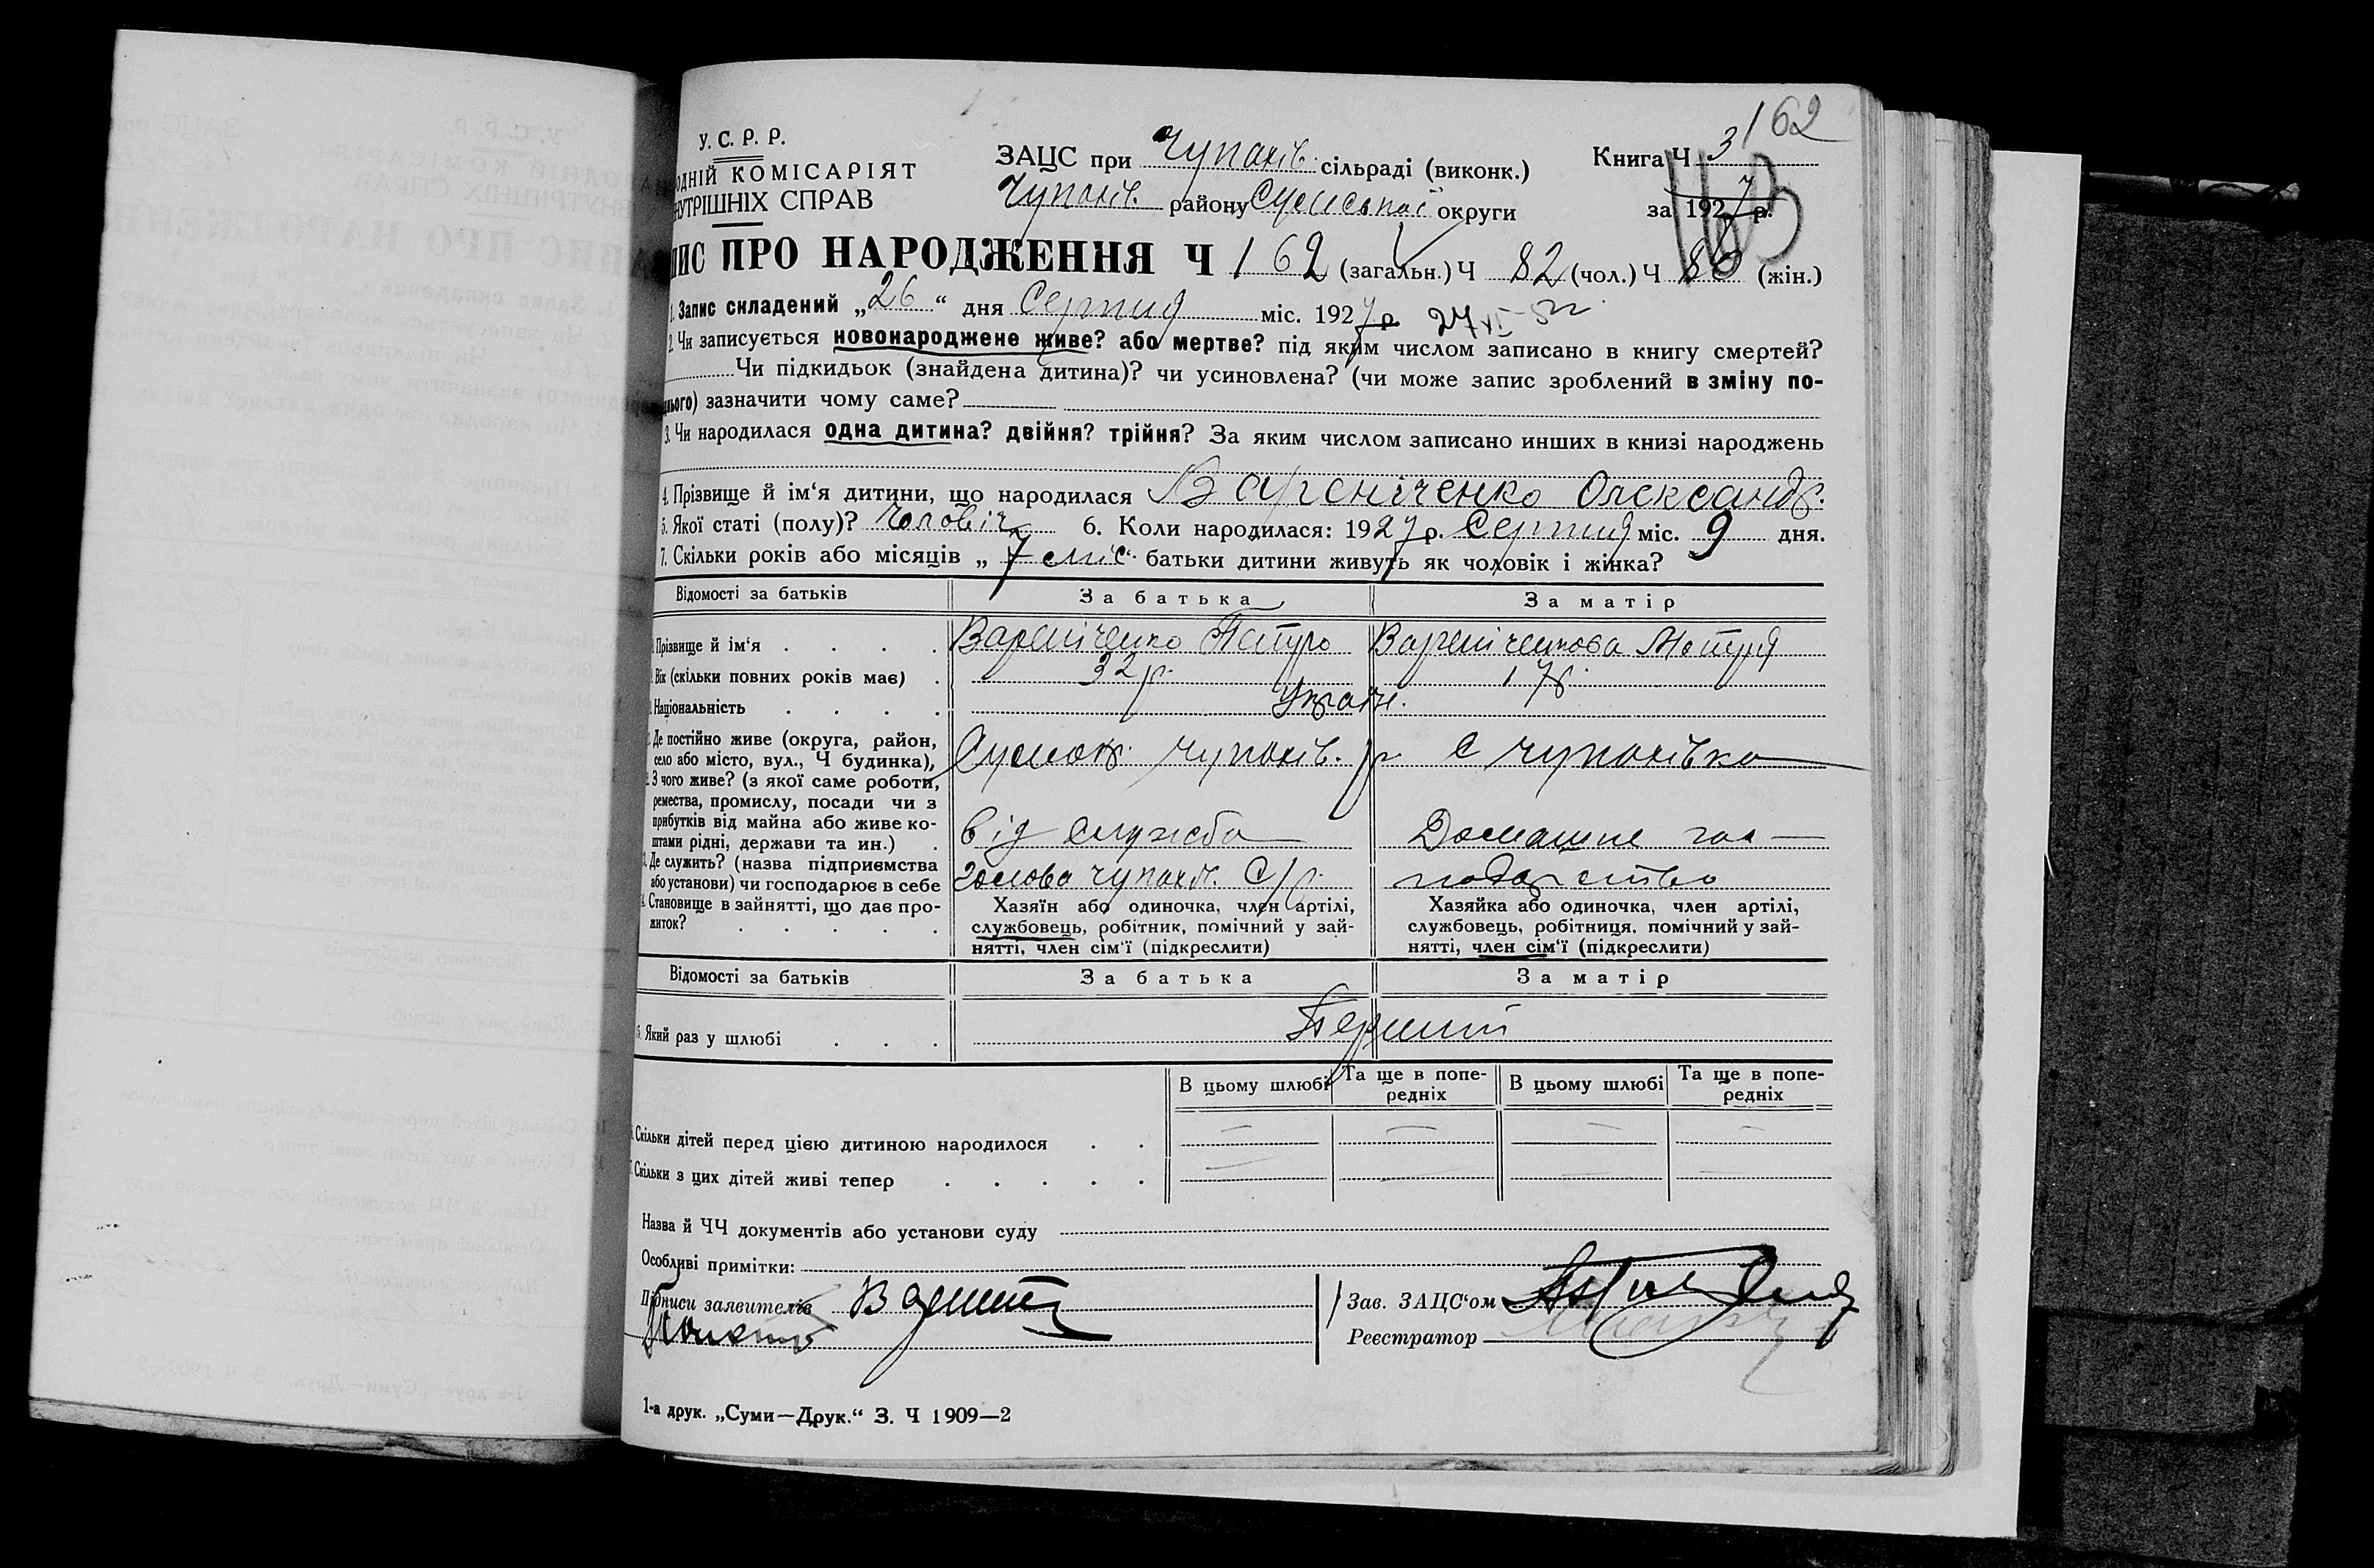 162
У. С. Р. Р.
ОДНІЙ КОМІСАРІЯТ
НУТРІШНІХ СПРАВ
ЗАЦС при Чупахів. сільраді (виконк.)
Чупахів. району Сумської округи
Книга Ч 3
за 1927 р.
ПИС ПРО НАРОДЖЕННЯ Ч 162 (загальн.) Ч 82 (чол.) Ч 80 (жін.)
1. Запис складений „26“ дня Серпня міс. 1927 р.
2. Чи записується новонароджене живе? або мертве? під яким числом записано в книгу смертей?
Чи підкидьок (знайдена дитина)? чи усиновлена? (чи може запис зроблений в зміну по-
нього) зазначити чому саме?
3. Чи народилася одна дитина? двійня? трійня? За яким числом записано инших в книзі народжень
4. Прізвище й ім‘я дитини, що народилася Вареніченко Олександр.
5. Якої статі (полу)? Чоловіч. 6. Коли народилася: 1927 р. Серпня міс. 9 дня.
7. Скільки років або місяців „7 міс“ батьки дитини живуть як чоловік і жінка?
Відомості за батьків За батька За матір
Прізвище й ім‘я Вареніченко Петро Вареніченкова Мотря
Вік (скільки повних років має) 32 р. 17 р.
Національність Україн.
Де постійно живе (округа, район,
село або місто, вул., Ч будинка), Сумськ. Чупахів. р. с Чупахівка
З чого живе? (з якої саме роботи,
ремества, промислу, посади чи з
прибутків від майна або живе ко-
штами рідні, держави та ин.) від служба Домашнє гос-
Де служить? (назва підприємства
або установи) чи господарює в себе голова Чупахів. С/р. подарство
Становище в зайнятті, що дає про-
житок?
Хазяїн або одиночка, член артілі,
службовець, робітник, помічний у зай-
нятті, член сім‘ї (підкреслити)
Хазяйка або одиночка, член артілі,
службовець, робітниця, помічний у зай-
нятті, член сім‘ї (підкреслити)
Відомості за батьків За батька За матір
Який раз у шлюбі Перший
В цьому шлюбі Та ще в попе-
редніх В цьому шлюбі Та ще в попе-
редніх
Скільки дітей перед цією дитиною народилося
Скільки з цих дітей живі тепер
Назва й ЧЧ документів або установи суду
Особливі примітки:
Підписи заявителів
Зав. ЗАЦС‘ом
Реєстратор
1-а друк. „Суми—Друк.“ З. Ч 1909—2